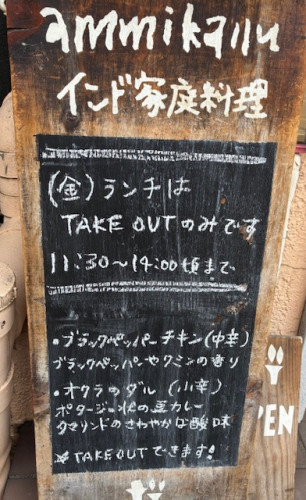 ammikallu
インド家庭料理
(金)ランチは
TAKE OUTのみです
11:30〜14:00頃まで
・ブラックペッパーチキン(中辛)
ブラックペッパーやクミンの香り
・オクラのダル(小辛)
ポタージュ状の豆カレー
タマリンドのさわやかな酸味
※TAKEOUTできます!
PEN